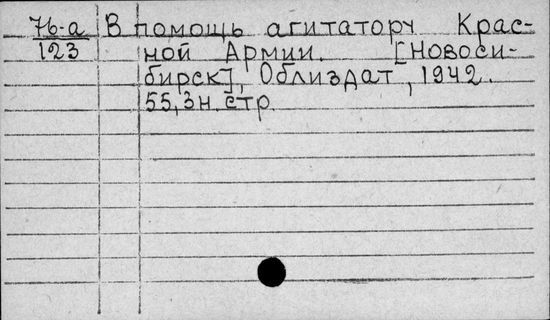 76-а В помощь агитатору Крас-
123 ной Армии. [Новоси-
бирск], Облиздат, 1942.
55,3н. стр.